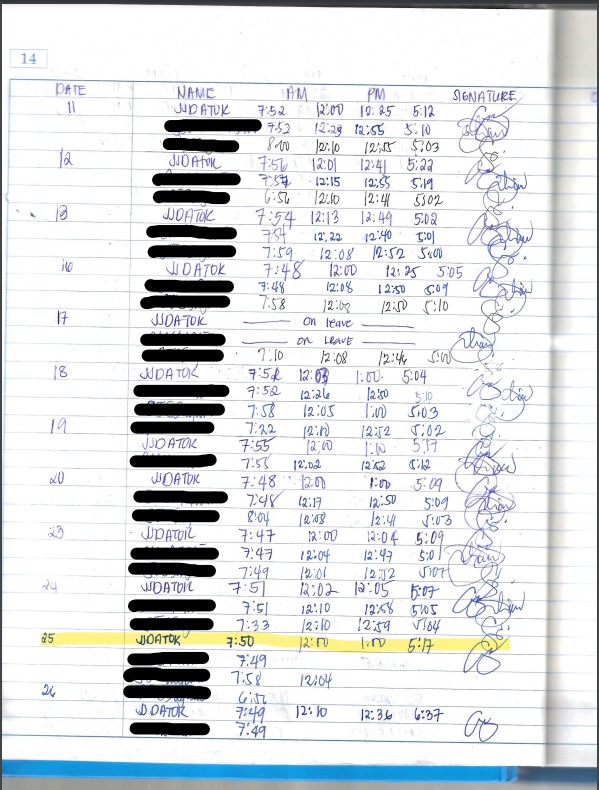 14
DATE NAME AM PM SIGNATURE
11 JJDATOK 7:52 12:00 12:25 5:12
7:52 12:29 12:55 5:10
8:00 12:10 12:55 5:03
12 JJDATOK 7:56 12:01 12:41 5:22
12:15 12:55 5:19
6:56 12:10 12:41 5:02
13 JJDATOK 7:54 12:13 12:49 5:02
7:54 12:22 12:40 5:01
7:59 12:08 12:52 5:00
16 JJDATOK 7:48 12:00 12:25 5:05
7:48 12:08 12:50 5:09
7:58 12:50 5:10
17 JJDATOK on leave
on leave
7:10 12:08 5:00
18 JJDATOK 7:52 12:03 1:00 5:04
7:52 12:26 12:50 5:10
7:58 12:05 1:00 5:03
19 7:22 12:10 12:52 5:02
JJDATOK 7:55 12:00 1:00 5:17
7:55 12:02 12:52 5:12
20 JJDATOK 7:48 12:00 1:00 5:09
7:48 12:17 12:50 5:09
8:04 12:08 12:41 5:03
23 JJDATOK 7:47 12:00 12:04 5:09
7:47 12:04 12:47 5:01
7:49 12:01 12:52 5:07
24 JJDATOK 7:51 12:02 12:05 5:07
7:51 12:10 12:58 5:05
7:33 12:10 12:59 5:04
25 JJDATOK 7:50 12:00 1:00 5:17
7:49
7:58 12:04
26 6:56
JJDATOK 7:49 12:10 12:36 6:37
7:49